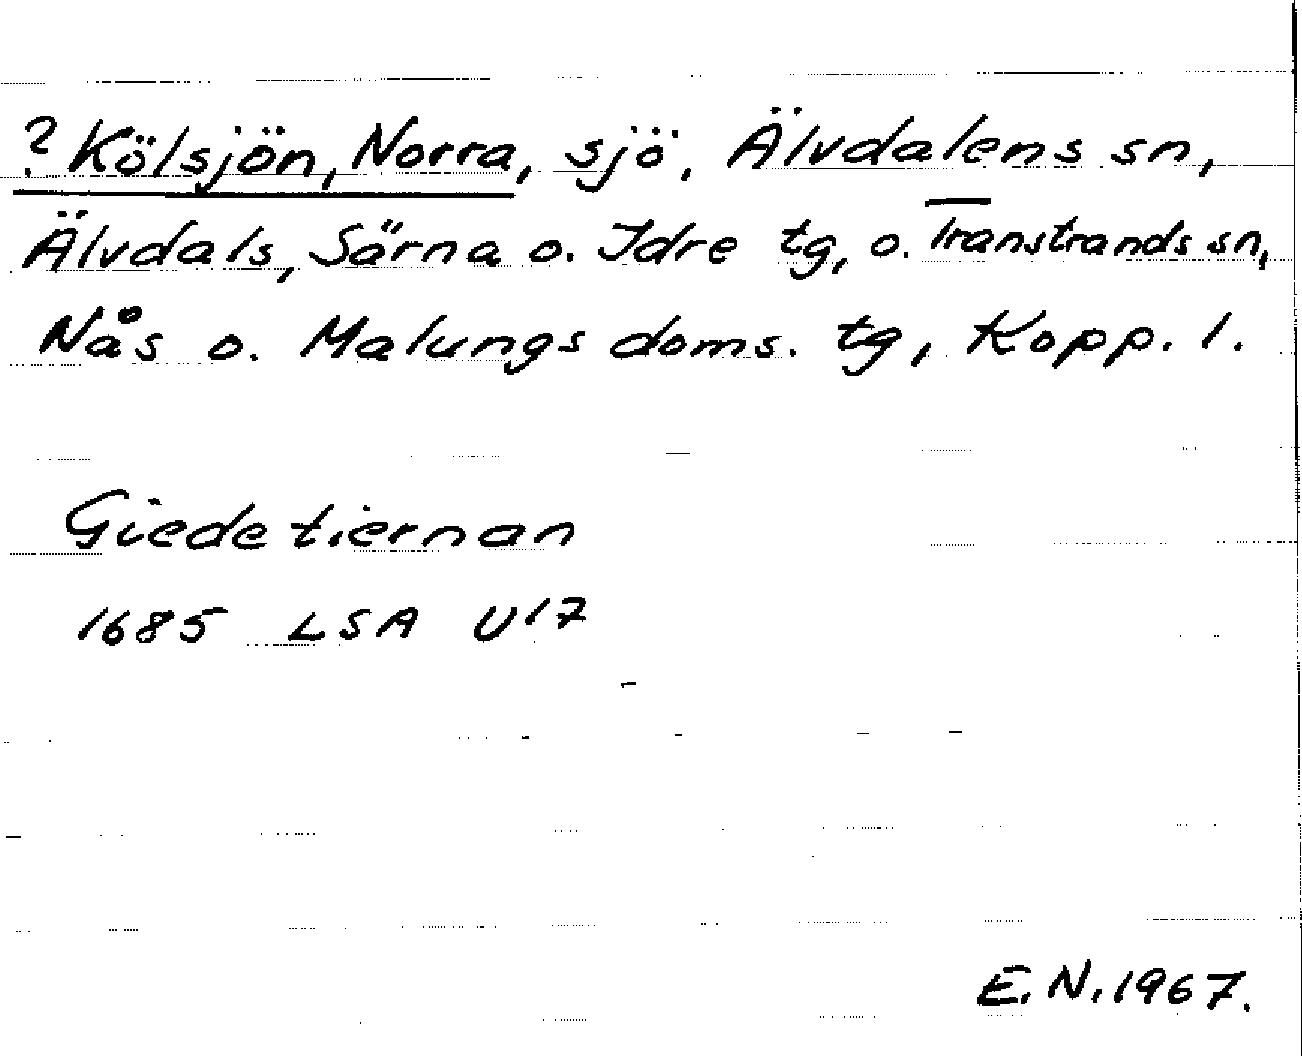 ? Kölsjön, Norra, sjö, Älvdalens sn,
Älvdals, Särna o. Idre tg, o. Transtrands sn,
Nås o. Malungs doms. tg, Kopp. l.
Giedetiernan
1685 LSA U17
E.N. 1967.